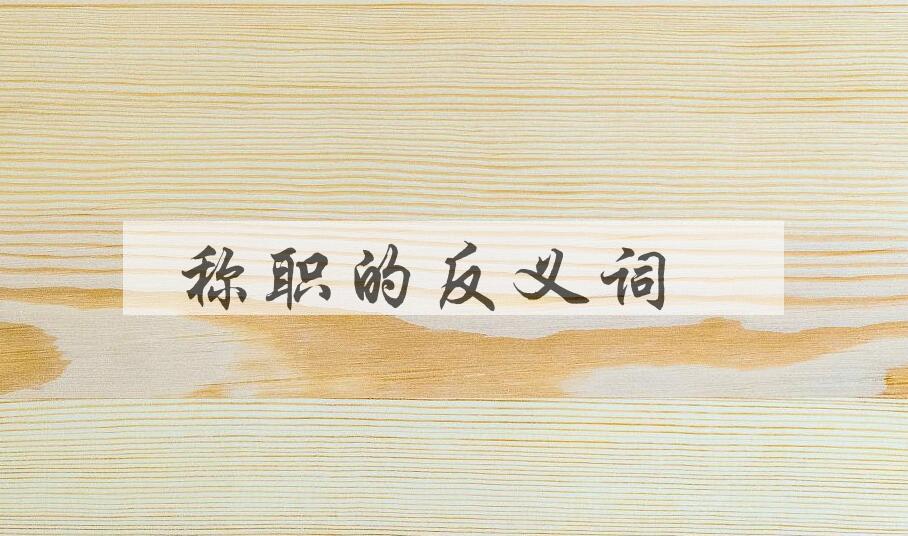 称职的反义词